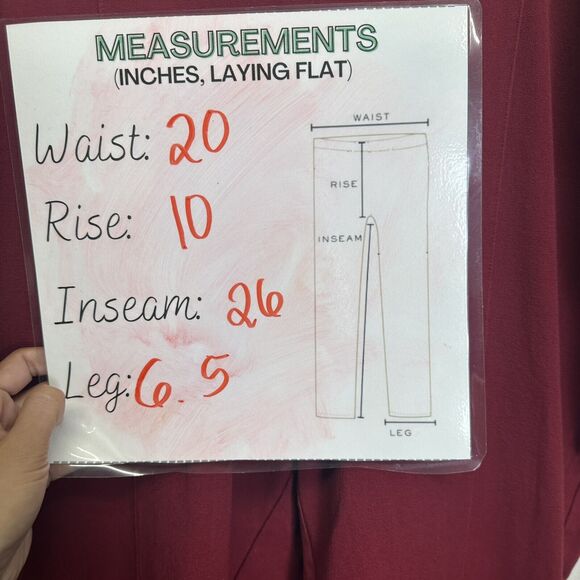 MEASUREMENTS
(INCHES, LAYING FLAT)
Waist: 20
Rise: 10
Inseam: 26
Leg: 6.5
WAIST
RISE
INSEAM
LEG